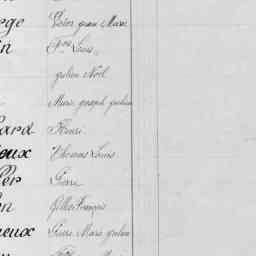 rge Victor jean Marie
in Fçois Louis
julien Noël
Marie joseph julien
lard Henri
ieux Thomas Louis
ler Pierre
on Gilles François
neux Pierre Marie julien